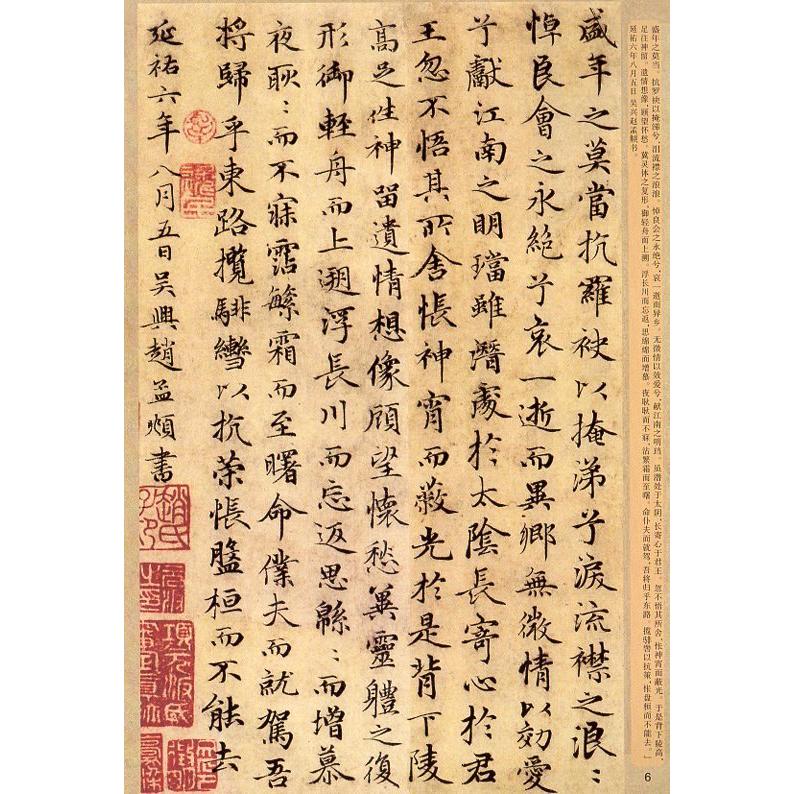 盛年之莫当。抗罗袂以掩涕兮，泪流襟之浪浪。悼良会之永绝兮，哀一逝而异乡。无微情以效爱兮，献江南之明珰。虽潜处于太阴，长寄心于君王。忽不悟其所舍，怅神宵而蔽光。于是背下陵高，
足往神留。遗情想像，顾望怀愁。冀灵体之复形，御轻舟而上溯。浮长川而忘返，思绵绵而增慕。夜耿耿而不寐，沾繁霜而至曙。命仆夫而就驾，吾将归乎东路。揽騑辔以抗策，怅盘桓而不能去。」
延祐六年八月五日 吴兴赵孟頫书。
盛年之莫當抗羅袂以掩涕兮淚流襟之浪〻
悼良會之永絶兮哀一逝而異鄉無微情以効愛
兮獻江南之明璫雖潛處於太陰長寄心於君
王忽不悟其所舍悵神宵而蔽光於是背下陵
高足往神留遺情想像顧望懷愁冀靈體之復
形御輕舟而上遡浮長川而忘返思緜〻而增慕
夜耿〻而不寐霑繁霜而至曙命僕夫而就駕吾
將歸乎東路攬騑轡以抗策悵盤桓而不能去
延祐六年八月五日吳興趙孟頫書
趙氏子昂
6